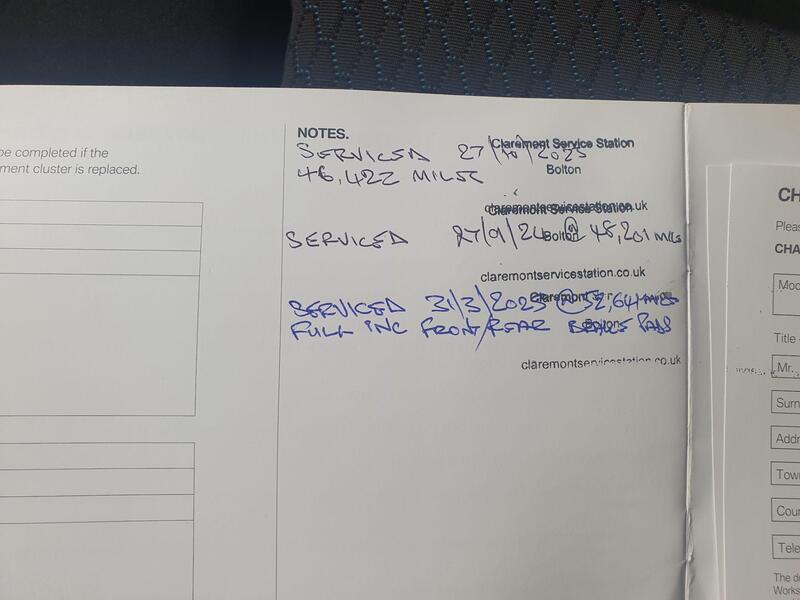 be completed if the
ment cluster is replaced.
NOTES.
SERVICED 27/10/2023
Claremont Service Station
46,422 MILES
Bolton
claremontservicestation.co.uk
Claremont Service Station
SERVICED 27/9/24 @ 48,201 MILES
Bolton
claremontservicestation.co.uk
SERVICED 31/3/2025 @ 52,641 MILES
Claremont
FULL INC FRONT/REAR BRAKE PADS
Bolton
claremontservicestation.co.uk
CH
Pleas
CHA
Moc
Title -
Mr.
Surn
Addr
Town
Coun
Tele
The de
Works